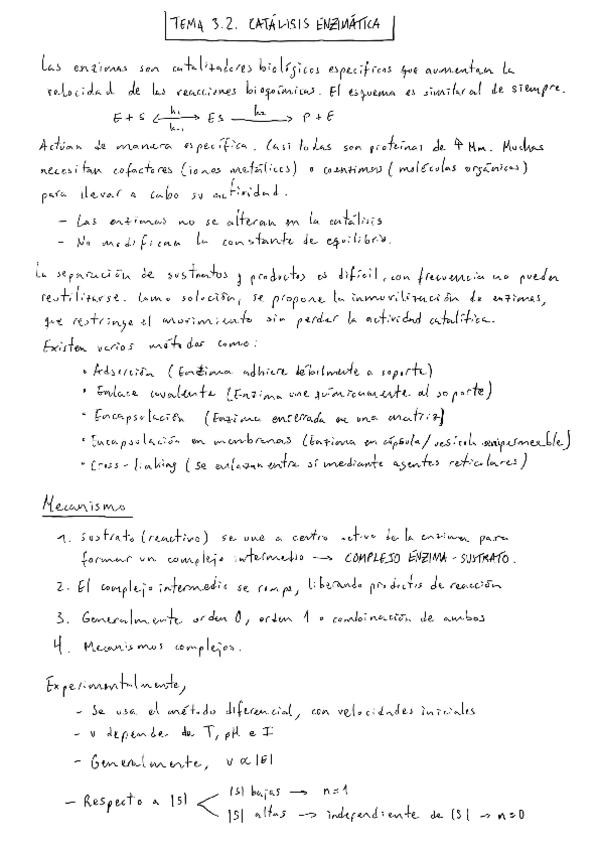 TEMA 3.2. CATÁLISIS ENZIMÁTICA
Las enzimas son catalizadores biológicos específicos que aumentan la
velocidad de las reacciones bioquímicas. El esquema es similar al de siempre.
E + S ⇄ ES → P + E
k₁ k₂
k₋₁
Actúan de manera específica. Casi todas son proteínas de ↑ Mm. Muchas
necesitan cofactores (iones metálicos) o coenzimas (moléculas orgánicas)
para llevar a cabo su actividad.
- Las enzimas no se alteran en la catálisis
- No modifican la constante de equilibrio.
La separación de sustratos y productos es difícil, con frecuencia no pueden
reutilizarse. Como solución, se propone la inmovilización de enzimas,
que restringe el movimiento sin perder la actividad catalítica.
Existen varios métodos como:
• Adsorción (Enzima adhiere débilmente a soporte)
• Enlace covalente (Enzima une químicamente al soporte)
• Encapsulación (Enzima encerrada en una matriz)
• Encapsulación en membranas (Enzima en cápsula/vesícula semipermeable)
• Cross-linking (se enlazan entre sí mediante agentes reticulares)
Mecanismo
1. Sustrato (reactivo) se une a centro activo de la enzima para
formar un complejo intermedio → COMPLEJO ENZIMA-SUSTRATO.
2. El complejo intermedio se rompe, liberando productos de reacción
3. Generalmente orden 0, orden 1 o combinación de ambos
4. Mecanismos complejos.
Experimentalmente,
- Se usa el método diferencial, con velocidades iniciales
- v depende de T, pH e I
- Generalmente, v ∝ |E|
- Respecto a |S| < |S| bajas → n=1
|S| altas → independiente de |S| → n=0